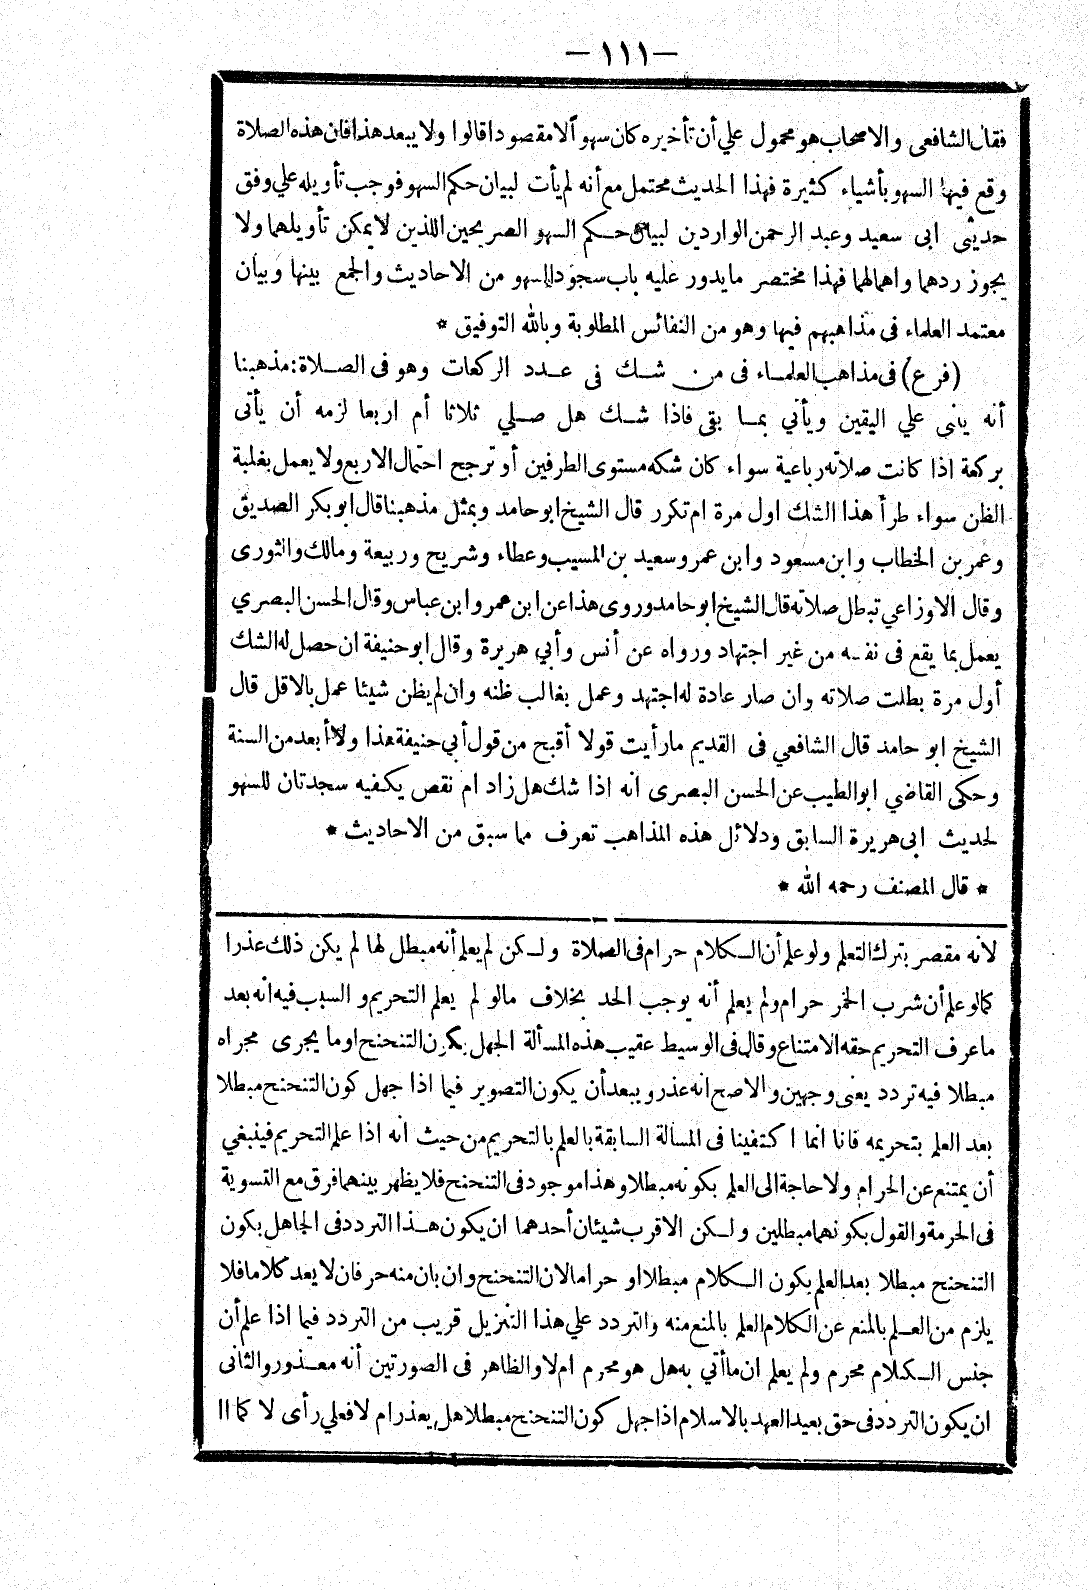 — ١١١ —
فقال الشافعى والاصحاب هو محمول علي أن تأخيره كان سهوا لا مقصودا قالوا ولا يبعد هذا فان هذه الصلاة
وقع فيها السهو بأشياء كثيرة فهذا الحديث محتمل مع أنه لم يأت لبيان حكم السهو فوجب تأويله علي وفق
حديثى ابى سعيد وعبد الرحمن الواردين لبيان حكم السهو الصريحين اللذين لا يمكن تأويلهما ولا
يجوز ردهما واهمالهما فهذا مختصر ما يدور عليه باب سجود السهو من الاحاديث والجمع بينها وبيان
معتمد العلماء فى مذاهبهم فيها وهو من النفائس المطلوبة وبالله التوفيق *
(فرع) فى مذاهب العلماء فى من شك فى عدد الركعات وهو فى الصلاة: مذهبنا
أنه يبنى علي اليقين ويأتي بما بقى فاذا شك هل صلي ثلاثا أم اربعا لزمه أن يأتى
بركعة اذا كانت صلاته رباعية سواء كان شكه مستوى الطرفين أو ترجح احتمال الاربع ولا يعمل بغلبة
الظن سواء طرأ هذا الشك اول مرة ام تكرر قال الشيخ ابو حامد وبمثل مذهبنا قال ابو بكر الصديق
وعمر بن الخطاب وابن مسعود وابن عمر وسعيد بن المسيب وعطاء وشريح وربيعة ومالك والثورى
وقال الاوزاعي تبطل صلاته قال الشيخ ابو حامد وروى هذا عن ابن عمر وابن عباس وقال الحسن البصري
يعمل بما يقع فى نفسه من غير اجتهاد ورواه عن أنس وأبي هريرة وقال ابو حنيفة ان حصل له الشك
أول مرة بطلت صلاته وان صار عادة له اجتهد وعمل بغالب ظنه وان لم يظن شيئا عمل بالاقل قال
الشيخ ابو حامد قال الشافعي فى القديم ما رأيت قولا أقبح من قول أبي حنيفة هذا ولا أبعد من السنة
وحكى القاضي ابو الطيب عن الحسن البصرى انه اذا شك هل زاد ام نقص يكفيه سجدتان للسهو
لحديث ابى هريرة السابق ودلائل هذه المذاهب تعرف مما سبق من الاحاديث *
* قال المصنف رحمه الله *
لانه مقصر بترك التعلم ولو علم أن الكلام حرام فى الصلاة ولكن لم يعلم أنه مبطل لها لم يكن ذلك عذرا
كما لو علم أن شرب الخمر حرام ولم يعلم أنه يوجب الحد بخلاف ما لو لم يعلم التحريم والسبب فيه انه بعد
ما عرف التحريم حقه الامتناع وقال فى الوسيط عقيب هذه المسألة الجهل بكون التنحنح او ما يجرى مجراه
مبطلا فيه تردد يعنى وجهين والاصح انه عذر ويبعد أن يكون التصوير فيما اذا جهل كون التنحنح مبطلا
بعد العلم بتحريمه فانا انما اكتفينا فى المسألة السابقة بالعلم بالتحريم من حيث انه اذا علم التحريم فينبغي
أن يمتنع عن الحرام ولا حاجة الى العلم بكونه مبطلا وهذا موجود فى التنحنح فلا يظهر بينهما فرق مع التسوية
فى الحرمة والقول بكونهما مبطلين ولكن الاقرب شيئان أحدهما ان يكون هذا التردد فى الجاهل بكون
التنحنح مبطلا بعد العلم بكون الكلام مبطلا او حراما لان التنحنح وان بان منه حرفان لا يعد كلاما فلا
يلزم من العلم بالمنع عن الكلام العلم بالمنع منه والتردد علي هذا التنزيل قريب من التردد فيما اذا علم أن
جنس الكلام محرم ولم يعلم ان ما أتي به هل هو محرم ام لا والظاهر فى الصورتين أنه معذور والثانى
ان يكون التردد فى حق بعيد العهد بالاسلام اذا جهل كون التنحنح مبطلا هل يعذر ام لا فعلي رأى لا كما